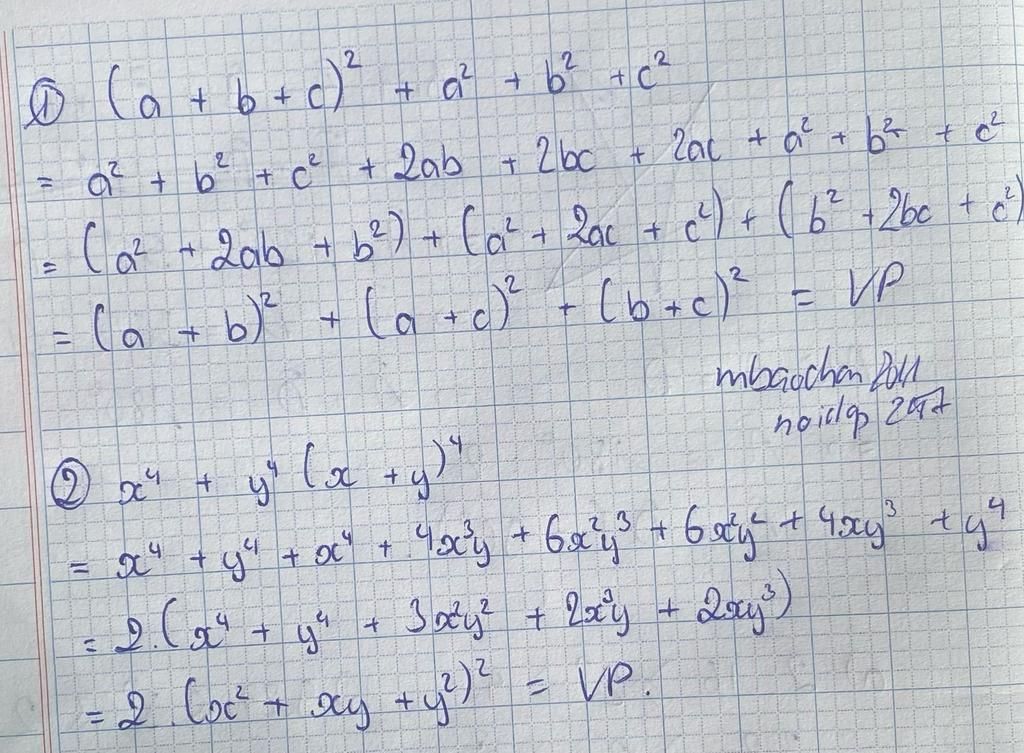 ① (a + b + c)² + a² + b² + c²
= a² + b² + c² + 2ab + 2bc + 2ac + a² + b² + c²
= (a² + 2ab + b²) + (a² + 2ac + c²) + (b² + 2bc + c²)
= (a + b)² + (a + c)² + (b + c)² = VP
mbaochan 2011
② x⁴ + y⁴ (x + y)⁴
= x⁴ + y⁴ + x⁴ + 4x³y + 6x²y³ + 6x²y² + 4xy³ + y⁴
= 2.(x⁴ + y⁴ + 3x²y² + 2x³y + 2xy³)
= 2.(x² + xy + y²)² = VP.